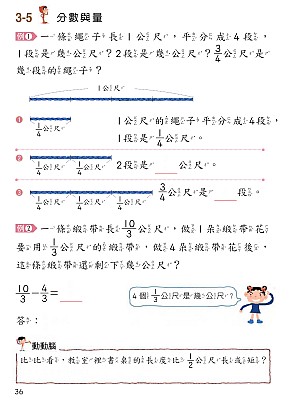 3-5 分數與量
例1 一條繩子長1公尺，平分成4段，
1段是幾公尺？2段是幾公尺？3/4公尺是
幾段的繩子？
1公尺
1 1/4公尺 1公尺的繩子平分成4段，
1段是1/4公尺。
2 1/4公尺 1/4公尺 2段是____公尺。
3 1/4公尺 1/4公尺 1/4公尺 3/4公尺是____段。
例2 一條緞帶長10/3公尺，做1朵緞帶花
要用1/3公尺的緞帶，做4朵緞帶花後，
這條緞帶還剩下幾公尺？
10/3-4/3=____
4個1/3公尺是幾公尺？
答：
動動腦
比比看，教室裡書桌的長度比1/2公尺長或短？
36